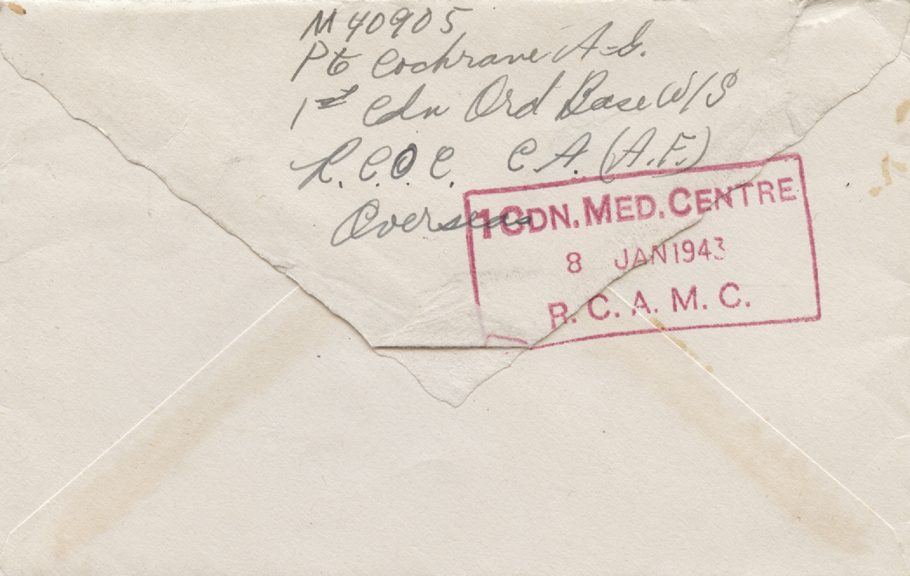 M40905
Pte Cochrane A-G.
1st Cdn Ord Base W/S
R.C.O.C. C.A. (A.F.)
Overseas
1 CDN. MED. CENTRE
8 JAN 1943
R. C. A. M. C.